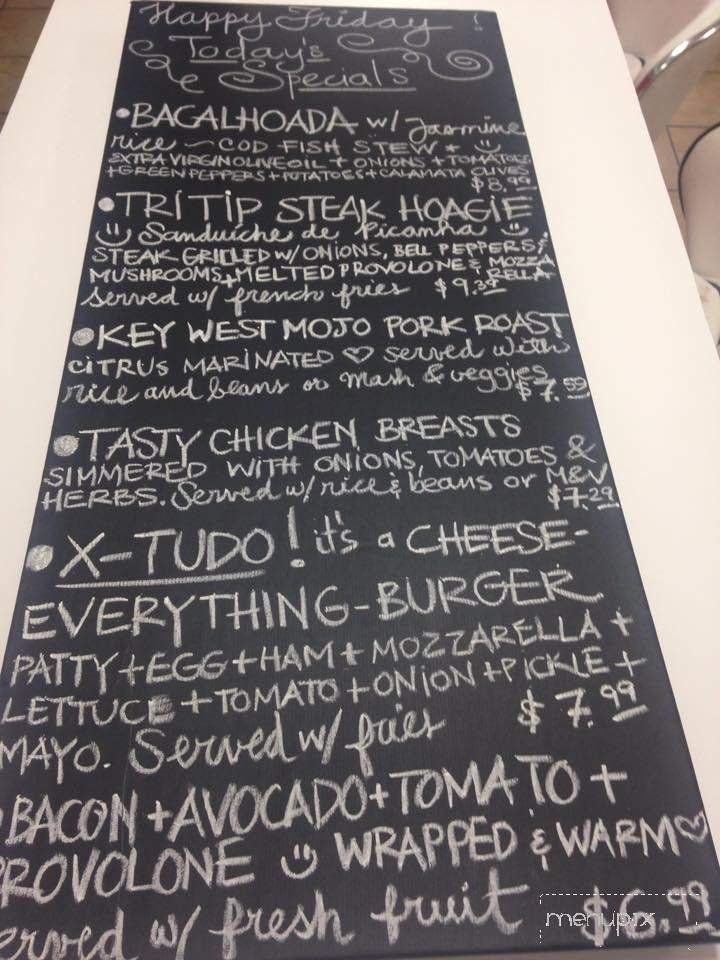 Happy Friday!
Today's
Specials
•BACALHOADA w/ Jasmine
rice ~ COD FISH STEW *
EXTRA VIRGIN OLIVE OIL + ONIONS + TOMATOES
+GREEN PEPPERS+POTATOES+CALAMATA OLIVES
$8.99
•TRI TIP STEAK HOAGIE
Sanduíche de Picanha
STEAK GRILLED W/ONIONS, BELL PEPPERS,
MUSHROOMS+MELTED PROVOLONE & MOZZA
RELLA
served w/ french fries $9.39
•KEY WEST MOJO PORK ROAST
CITRUS MARINATED ♡ served with
rice and beans or mash & veggies
$7.59
•TASTY CHICKEN BREASTS
SIMMERED WITH ONIONS, TOMATOES &
HERBS. Served w/rice & beans or M&V
$7.29
•X-TUDO! it's a CHEESE-
EVERYTHING-BURGER
PATTY+EGG+HAM+MOZZARELLA+
LETTUCE+TOMATO+ONION+PICKLE+
MAYO. Served w/ fries $7.99
BACON+AVOCADO+TOMATO+
PROVOLONE WRAPPED & WARM♡
served w/ fresh fruit $6.99
menupix